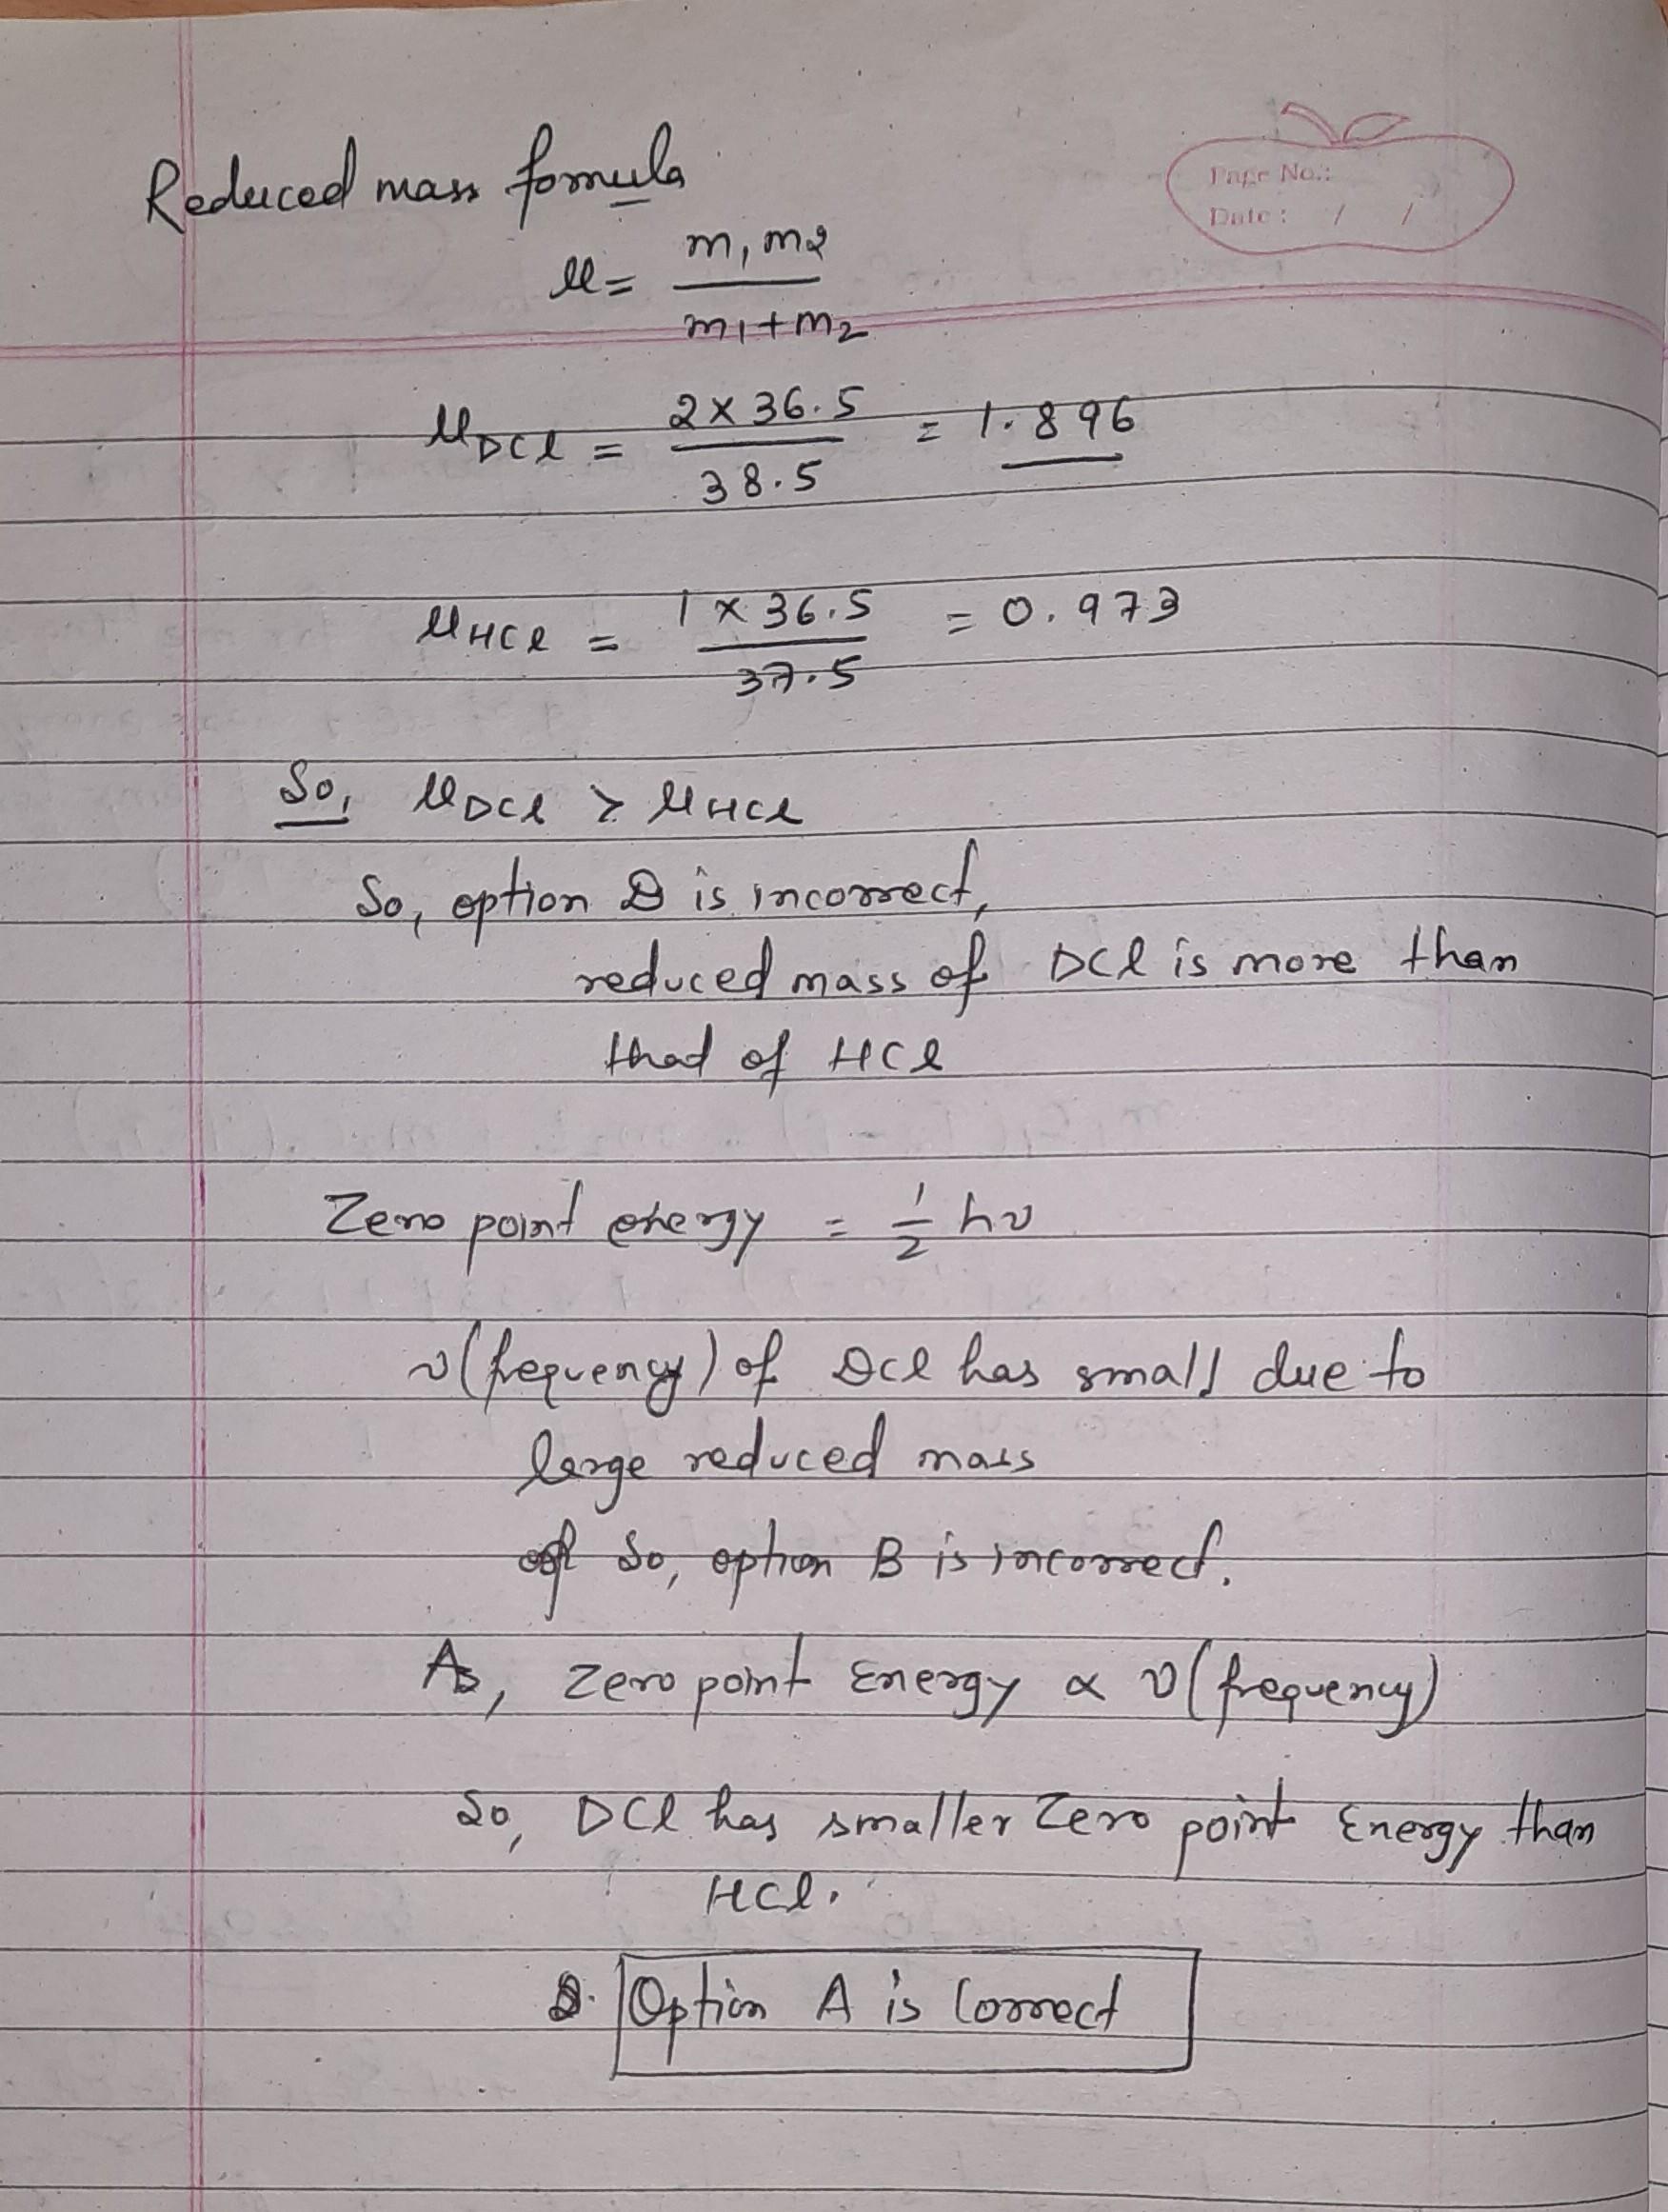 Page No.:
Date : / /
Reduced mass formula
μ = m1 m2 / m1+m2
μDCl = 2 x 36.5 / 38.5 = 1.896
μHCl = 1 x 36.5 / 37.5 = 0.973
So, μDCl > μHCl
So, option D is incorrect,
reduced mass of DCl is more than
that of HCl
Zero point energy = 1/2 hν
ν(frequency) of DCl has small due to
large reduced mass
So, option B is incorrect.
As, Zero point Energy ∝ ν(frequency)
So, DCl has smaller Zero point Energy than
HCl.
Option A is Correct